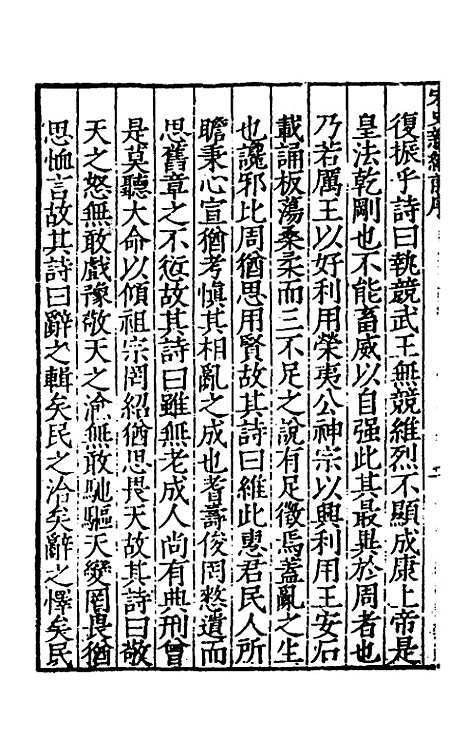 宋史新編前序
復振乎詩曰執競武王無競維烈不顯成康上帝是
皇法乾剛也不能畜威以自强此其最異於周者也
乃若厲王以好利用榮夷公神宗以興利用王安石
載誦板蕩桑柔而三不足之說有足徵焉蓋亂之生
也讒邪比周猶思用賢故其詩曰維此惠君民人所
瞻秉心宣猶考慎其相亂之成也耆壽俊罔憗遺而
思舊章之不泯故其詩曰雖無老成人尚有典刑曾
是莫聽大命以傾祖宗罔紹猶思畏天故其詩曰敬
天之怒無敢戲豫敬天之渝無敢馳驅天變罔畏猶
思恤言故其詩曰辭之輯矣民之洽矣辭之懌矣民